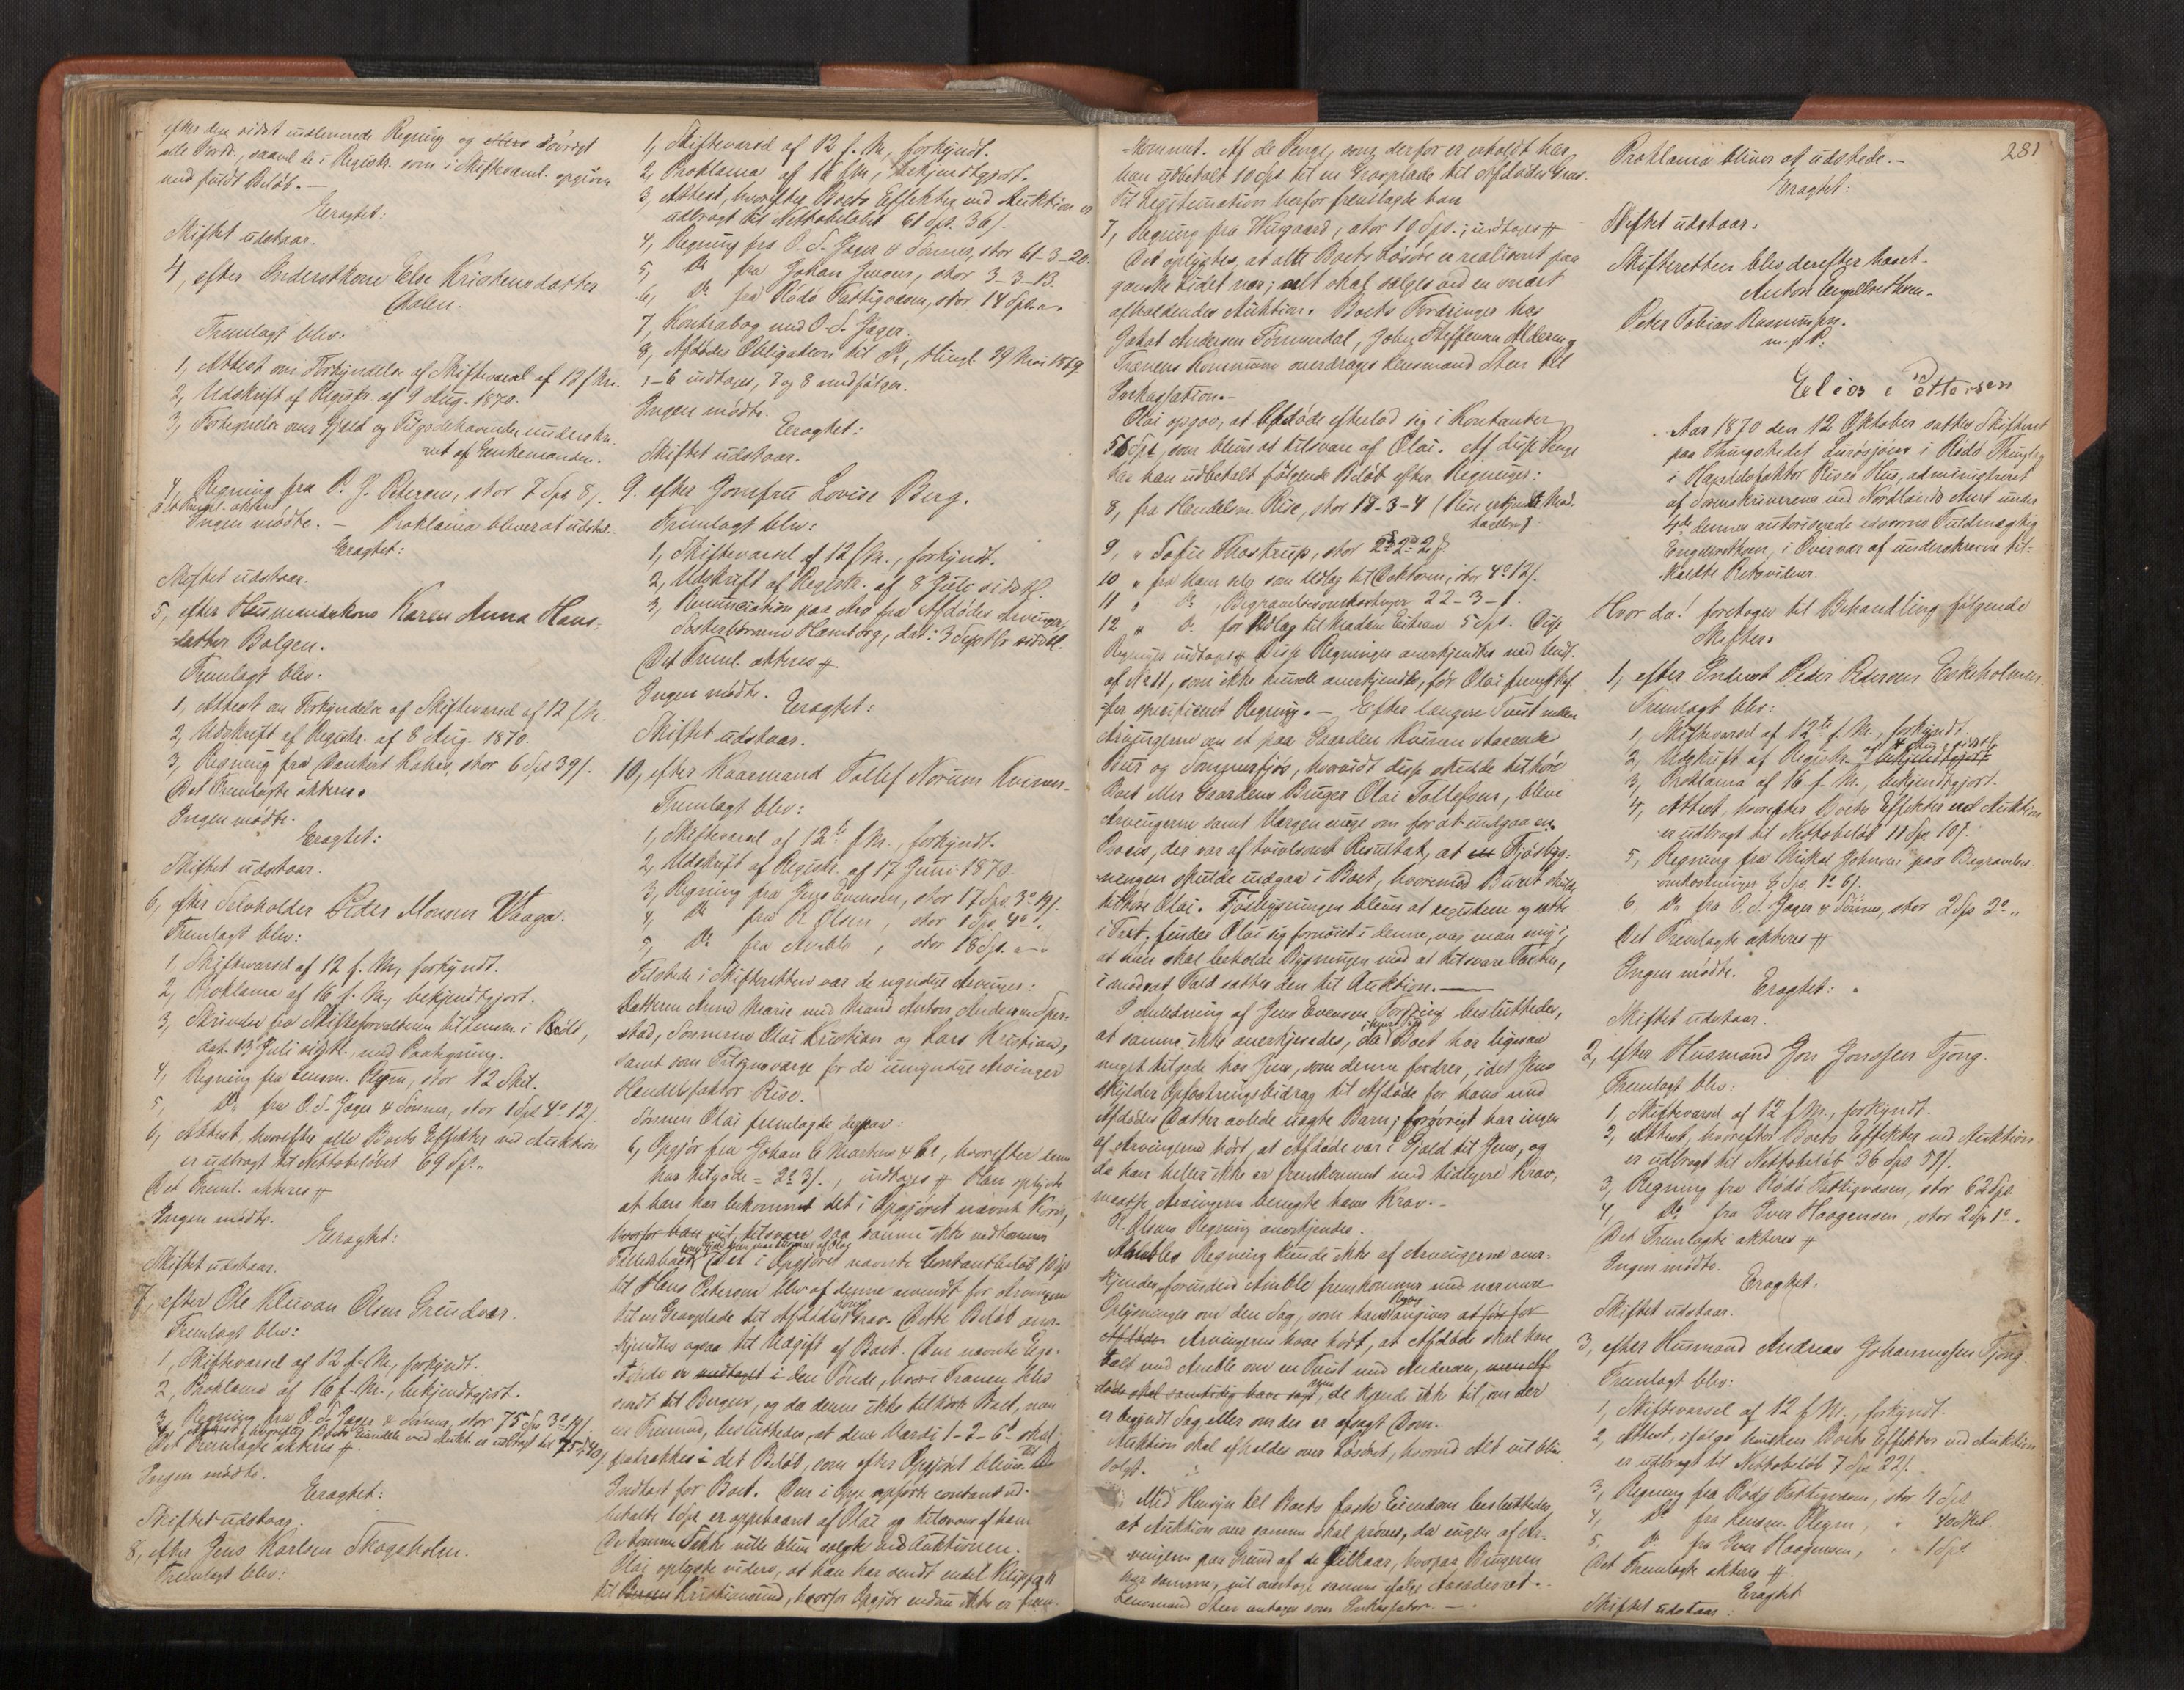 efter den sidst udleverede Regning og iövrigt
alle Fordr., saavel de i Registr. som i Skiftesaml. opgivne
med fuldt Belöb. -
Eragtet:
Skiftet udstaar.
4, efter Inderstkone Else Kristensdatter
Aolen.
Fremlagt blev:
1, Attest om Forkyndelse af Skiftevarsel af 12 f. M.
2, Udskrift af Registr. af 9 Aug. 1870.
3, Fortegnelse over Gjæld og Tilgodehavende underskre-
vet af Enkemanden.
4, Regning fra P. J. Petersen, stor 7 Spd 8 /.
Ingen mödte. - Proklama bliver at udstede.
Eragtet:
Skiftet udstaar.
5, efter Husmandskone Karen Anna Hans-
datter Bolgen.
Fremlagt blev:
1, Attest om Forkyndelse af Skiftevarsel af 12 f. M.
2, Udskrift af Registr. af 8 Aug. 1870.
3, Regning fra Dankert Kahrs, stor 6 Spd 39 /.
Det Fremlagte akteres.
Ingen mödte.
Eragtet:
Skiftet udstaar.
6, efter Selvholder Peder Monsen Vaaga.
Fremlagt blev:
1, Skiftevarsel af 12 f. M., forkyndt.
2, Proklama af 16 f. M., bekjendtgjort.
3, Skrivelse fra Skifteforvalteren til Lensm. i Bodö,
dat. 13 Juli sidstl., med Paategning.
4, Regning fra Lensm. Plegen, stor 12 Skil.
5, Do fra O. S. Jæger & Sönner, stor 1 Spd 4 o 12 /.
6, Attest, hvorefter alle Boets Effekter ved Auktion
er udbragt til Nettobelöbet 69 Spd "
Det Freml. akteres #
Ingen mödte.
Eragtet:
Skiftet udstaar.
7, efter Ole Kluvan Olsen Grindvær.
Fremlagt blev:
1, Skiftevarsel af 12 f. M., forkyndt.
2, Proklama af 16 f. M., bekjendtgjort.
3, Regning fra O. S. Jæger & Sönner, stor 75 Spd 3 o 19 /.
4, Attest, hvorefter Boets Eiendele ved Auktion er udbragt til 75
Det Fremlagte akteres #.
Ingen mödte.
Eragtet:
Skiftet udstaar.
8, efter Jens Karlsen Skogsholm.
Fremlagt blev:
1, Skiftevarsel af 12 f. M., forkyndt.
2, Proklama af 16 f. M., bekjendtgjort.
3, Attest, hvorefter Boets Effekter ved Auktion er
udbragt til Nettobelöbet 61 Spd. 36 /.
4, Regning fra O. S. Jæger & Sönner, stor 61-3-20.
5, Do fra Johan Jensen, stor 3-3-13.
6, Do fra Rödö Fattigvæsen, stor 14 Spd. ".
7, Kontrabog med O. S. Jæger.
8, Afdödes Obligation til Do, thingl. 29 Mai 1869
1-6 indtages, 7 og 8 medfölger.
Ingen mödte.
Eragtet:
Skiftet udstaar.
9. efter Jomfru Lovise Berg.
Fremlagt blev:
1, Skiftevarsel af 12 f. M., forkyndt.
2, Udskrift af Registr. af 8 Juli sidstl.
3, Renunciation paa Arv fra Afdödes Arvinger,
Söskendbörnene Hamborg, dat. 3 Septbr sidstl.
Det Freml. akteres #.
Ingen mödte.
Eragtet:
Skiftet udstaar.
10, efter Kaarmand Tollef Norum Kvinen.
Fremlagt blev:
1, Skiftevarsel af 12te f. M., forkyndt.
2, Udskrift af Registr. af 17 Juni 1870.
3, Regning fra Jens Evensen, stor 17 Spd. 3 o 19 /.
4, Do fra R. Olsen, stor 1 Spd 4 o ".
5, Do fra Amble, stor 18 Sp. " - "
Tilstede i Skifteretten var de myndige Arvinger:
Datteren Anne Marie med Mand Anton Andersen Sper-
stad, Sönnerne Olai Kristian og Lars Kristian,
samt som Tilsynsværge for de umyndige Arvinger
Handelsfaktor Riise.
Sönnen Olai fremlagde derpaa:
6, Opgjör fra Johan C Martens & Co, hvorefter denne
har tilgode = 2 o 3 /., indtages # Han oplyste
at han har bekommet det i Opgjöret nævnte Korn,
hvorfor han vil tilsvare saa samme ikke vedkommer
Fællesboet. Det i Opgjöret nævnte Contantbelöb 10 Spd
til Hans Petersen blev af denne anvendt for Arvingerne
til en Gravplade til Afdödes Kones Grav. Dette Belöb aner-
kjendtes ogsaa til Udgift af Boet. Den nævnte Ege-
tönde er medtaget i den Tönde, hvori Tranen blev
sendt til Bergen, og da denne ikke tilhörte Boet, men
en Fremmed, besluttedes, at dens Værdi 1-2-6 d skal
fratrækkes i det Belöb, som efter Opgjöret bliver til
Indtægt for Boet. Den i Opgj. opförte contant ud-
betalte 1 Spd er oppebaaret af Olai og tilsvares af ham
De tomme Sække ville blive solgte ved Auktionen.
Olai oplyste videre, at han har sendt endel Klipfisk
til Bergen Kristiansund, hvorfor Opgjör endnu ikke er frem-
kommet. Af de Penge, som derfor er erholdt har
han udbetalt 10 Spd. til en Gravplade til Afdödes Grav.
Til Legitimation herfor fremlagde han
7, Regning fra Husgaard, stor 10 Spd.; indtages #
Det oplystes, at alt Boets Lösöre er realiseret paa
ganske Lidet nær; alt skal sælges ved en snart
afholdendes Auktion. Boets Fordringer hos
Jakob Andersen Sörnundal, John Steffensen Aldern og
Trænens Kommune overdrages Lensmand Steen til
Inkassation. -
Olai opgav, at Afdöde efterlod sig i Kontanter
56 Spd, som blive at tilsvare af Olai. Af disse Penge
har han udbetalt fölgende Belöb efter Regninger:
8, fra Handelsm. Riise, stor 18-3-4 (Riise erkjendte Mod-
tagelsen)
9, " Sofie Thostrup, stor 2 o 2 /
10 " fra ham selv som Udlæg til Doktoren, stor 4 o 12 /.
11 " Do , Begravelsesomkostninger 22-3-1.
12 " Do for Udlæg til Madam Eitran 5 Spd. Disse
Regninger indtages # Disse Regninger anerkjendtes med Undt.
af No 11, som ikke kunde anerkjendtes, för Olai fremskaf-
fer specificeret Regning. - Efter længere Tvist mellem
Arvingerne om et paa Gaarden Kvinen staaende
Bur og Sommerfjös, hvorvidt disse skulde tilhöre
Boet eller Gaardens Bruger Olai Tollefsen, blev
Arvingerne samt Værgen enige om for at undgaa en
Proces, der var af tvivlsomt Resultat, at Fjösbyg-
ningen skulde indgaa i Boet, hvorimod Buret skulde
tilhöre Olai. Fjösbygningen bliver at registrere og sætte
i Taxt. Finder Olai sig fornöiet i denne, var man enig i,
at han skal beholde Bygningen mod at tilsvare Taxten,
i modsat Fald sættes den til Auktion. ---
I Anledning af Jens Evensens Fordring besluttedes,
at samme ikke anerkjendes, da Boet har ligesaa
meget tilgode hos Jens, som denne fordrer, idet Jens
skylder Opfostringsbidrag til Afdöde for hans med
Afdödes Datter avlede uægte Barn; forövrigt har ingen
af Arvingerne hört, at Afdöde var i Gjæld til Jens, og
da han heller ikke er fremkommet med tidligere Krav,
maatte Arvingerne benægte hans Krav. -
R. Olsens Regning anerkjendes.
Ambles Regning kunde ikke af Arvingerne aner-
kjendes, forinden Amble fremkommer med nærmere
Oplysninger om den Sag, som hans Regning angiver at före for
Afdöde. Arvingerne have hört, at Afdöde skal have
talt med Amble om en Tvist med Andersen, men Af-
döde skal samtidig have sagt, de kjende ikke til, om der
er begyndt Sag eller om der er afsagt Dom.
Auktion skal afholdes over Lösöret, hvorved Alt vil blive
solgt.
Med Hensyn til Boets faste Eiendom besluttedes,
at Auktion over samme skal pröves, da ingen af Ar-
vingerne paa Grund af de Vilkaar, hvorpaa Brugeren
har samme, vil overtage samme ifölge Aasædesret. -
Lensmand Steen antages som Inkassator. -
281
Proklama bliver at udstede. -
Eragtet:
Skiftet udstaar.
Skifteretten blev derefter hævet -
Anton Engelbrethsen -
Peter Tobias Rasmussen.
m. p. P.
Elias Pettersen
Aar 1870 den 12 Oktober sattes Skifteret
paa Thingstedet Lurösjöen i Rödö Thinglag
i Handelsfaktor Riises Hus, administreret
af Sorenskriveren ved Nordlands Amt under
4de dennes autoriserede edsvorne Fuldmægtig
Engelbrethsen, i Overvær af underskrevne til-
kaldte Retsvidner.
Hvor da! foretoges til Behandling fölgende
Skifter.
1, efter Inderst Peder Pedersen Eskeholmen.
Fremlagt blev:
1, Skiftevarsel af 12te f. M., forkyndt.
2, Udskrift af Registr. af 4 Aug. sidstl. bekjendtgjort.
3, Proklama af 16 f. M., bekjendtgjort.
4, Attest, hvorefter Boets Effekter ved Auktion
er udbragt til Nettobelöb 11 Spd 10 /.
5, Regning fra Mikal Johnsen paa Begravelses-
omkostninger 8 Spd. 1 o 6 /.
6, Do fra O. S. Jæger & Sönner, stor 2 Spd 2 o "
Det Fremlagte akteres #
Ingen mödte.
Eragtet:
Skiftet udstaar.
2, efter Husmand Jon Jonssen Tjong.
Fremlagt blev:
1, Skiftevarsel af 12 f. M., forkyndt.
2, Attest, hvorefter Boets Effekter ved Auktion
er udbragt til Nettobelöb 36 Spd 59 /.
3, Regning fra Rödö Fattigvæsen, stor 62 Spd
4, Do fra Iver Haagensen, stor 2 Sp 1 o.
Det Fremlagte akteres #
Ingen mödte.
Eragtet.
Skiftet udstaar.
3, efter Husmand Andreas Johannessen Tjong.
Fremlagt blev:
1, Skiftevarsel af 12 f. M., forkyndt.
2, Attest, ifölge hvilken Boets Effekter ved Auktion
er udbragt til Nettobelöb 7 Spd 22 /.
3, Regning fra Rödö Fattigvæsen, stor 4 Spd
4, Do fra Lensm. Plegen, " 40 Skil.
5, Do fra Iver Haagensen, " 1 Spd
Det Fremlagte akteres #.
Eragtet
Skiftet udstaar.